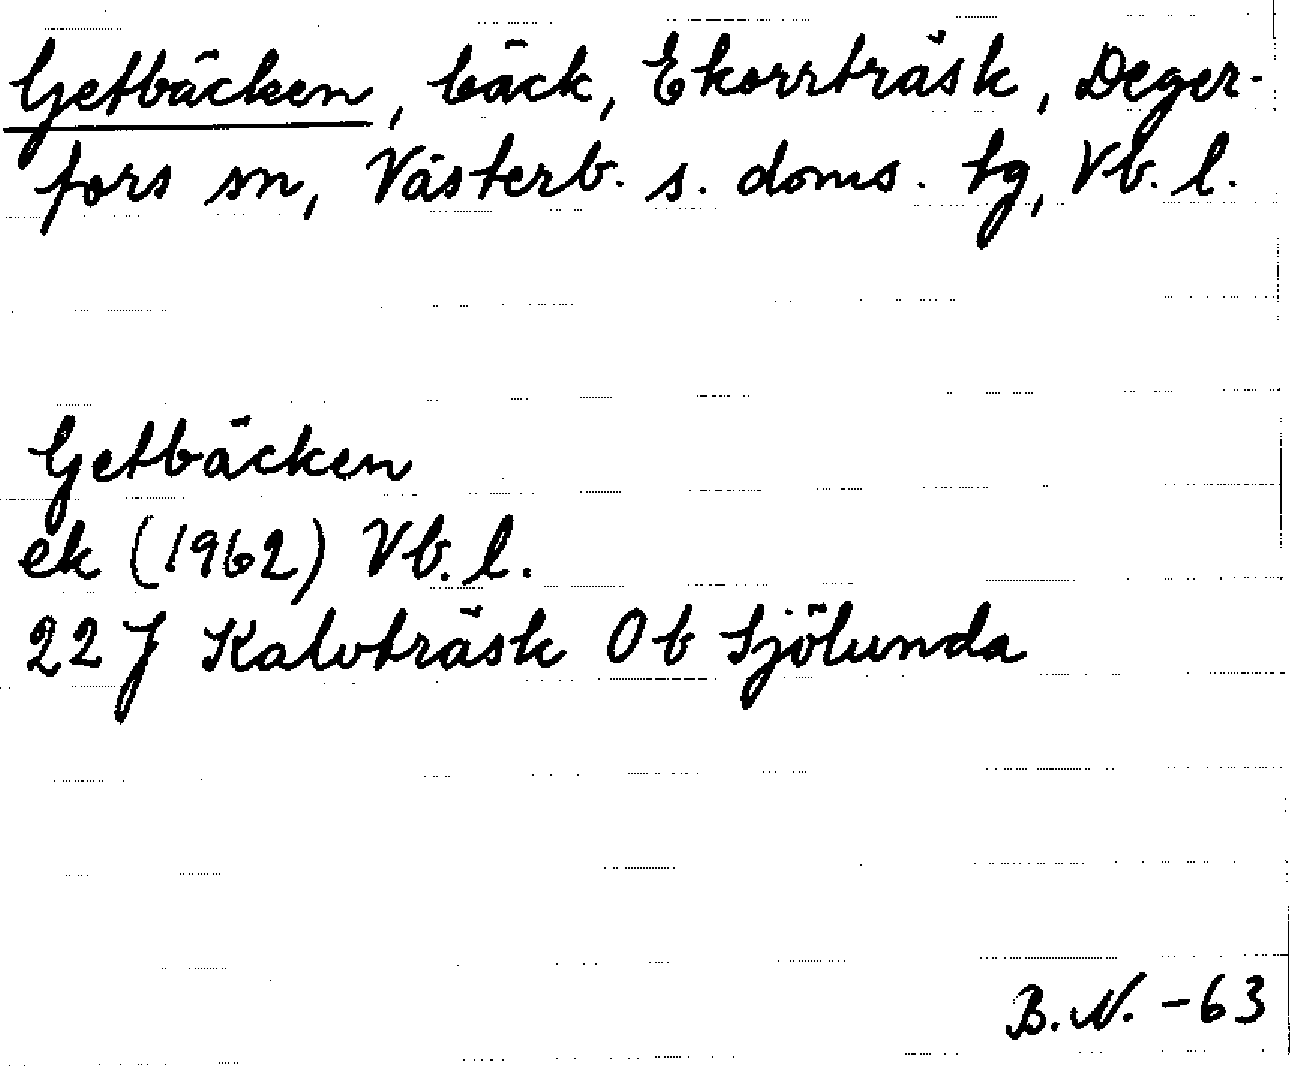 Getbäcken, bäck, Ekorrträsk, Deger-
fors sn, Västerb. s. doms. tg, Vb. l.
Getbäcken
ek (1962) Vb. l.
22 J Kalvträsk 0 b Sjölunda
B. N. -63